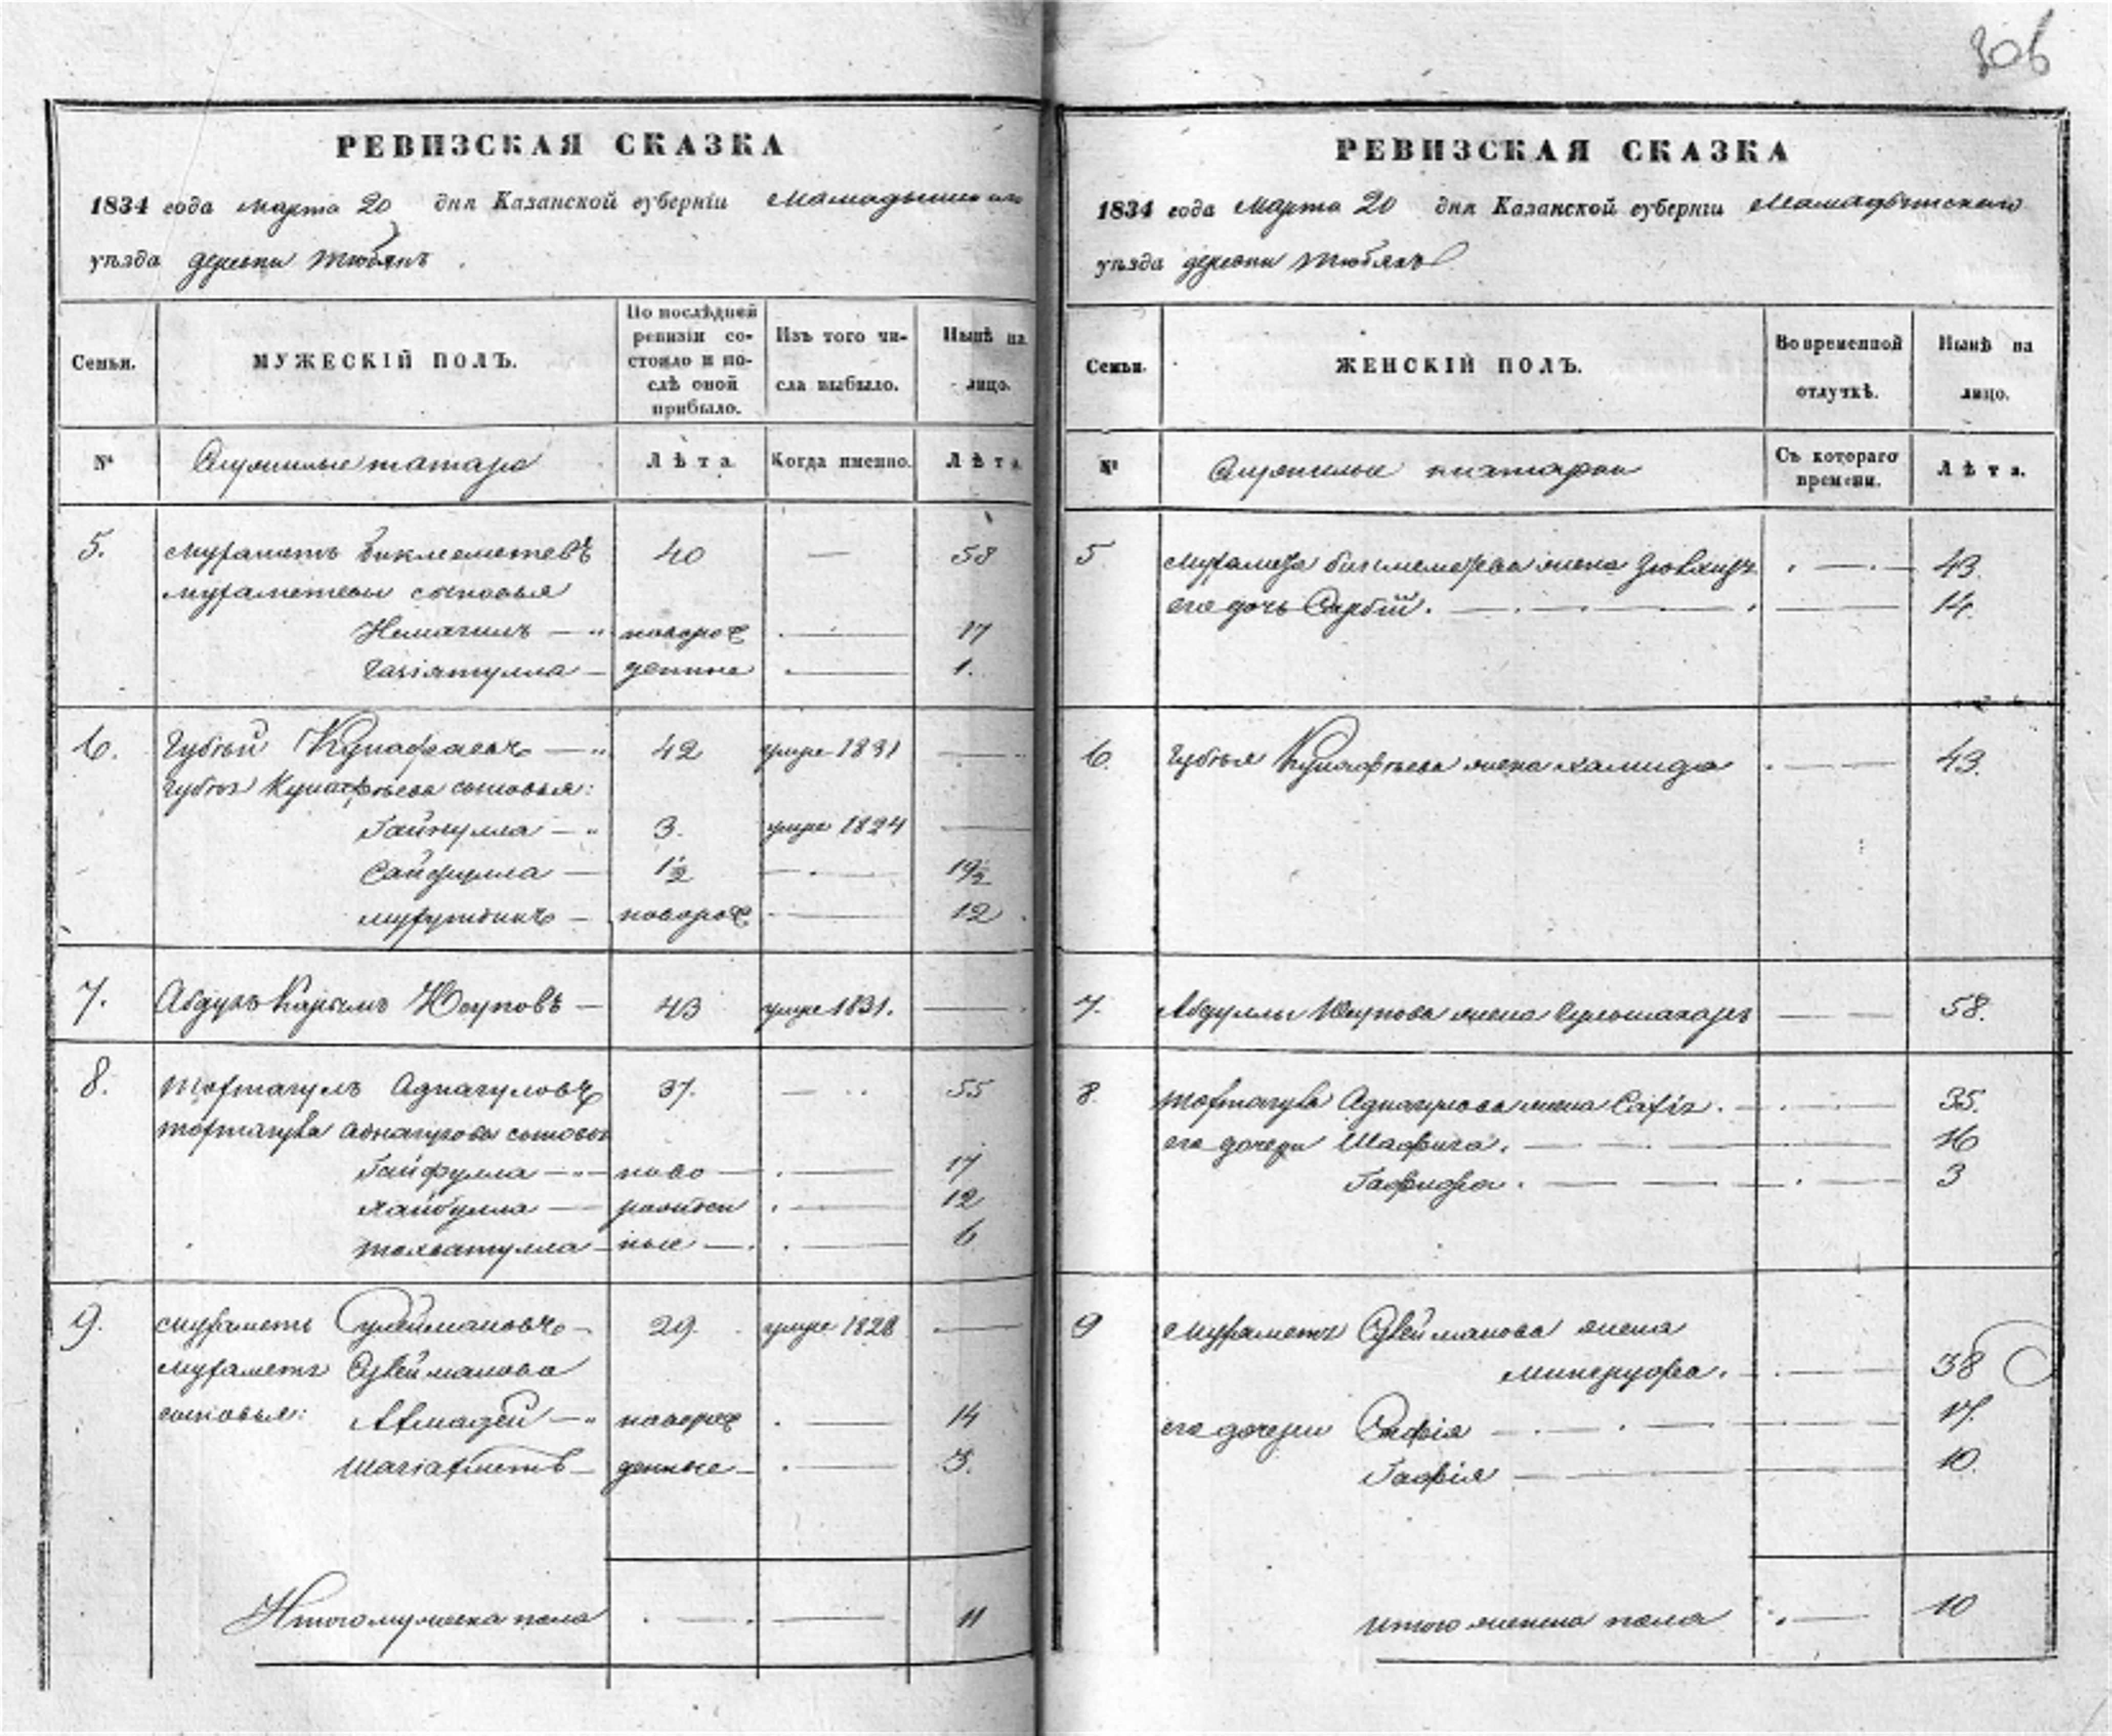 306
РЕВИЗСКАЯ СКАЗКА
1834 года марта 20 дня Казанской губерніи Мамадышскаго
уѣзда деревни Тюбякъ
Семьи.
МУЖЕСКІЙ ПОЛЪ.
По послѣдней ревизіи состояло и послѣ оной прибыло.
Изъ того числа выбыло.
Нынѣ на лицо.
№
Служилые татара
Лѣта
Когда именно.
Лѣта
5. Мухаметь Бикмеметевъ 40 — 58
Мухаметевы сыновья
новорож 17
денные 1.
6. 42 умре 1831 —
сыновья:
Гайнулла — 3. умре 1824 —
Сайфулла — 1½ — 19½
новорож — 12
7. Абдулъ Карымъ Юсуповъ — 43 умре 1831. —
8. Тохтагулъ Аднагуловъ 37. — 55
Тохтагула Аднагулова сыновья
Гайфулла — ново — 17
Хайбулла — рожден — 12
ные — 6
9. Мухаметь Сулеймановъ — 29. умре 1828 —
Мухаметь Сулейманова
сыновья: новорож — 14
Шагіахметъ — денные — 3.
Итого мужеска пола — — 11
РЕВИЗСКАЯ СКАЗКА
1834 года Марта 20 дня Казанской губерніи Мамадышскаго
уѣзда деревни Тюбякъ
Семьи.
ЖЕНСКІЙ ПОЛЪ.
Во временной отлучкѣ.
Нынѣ на лицо.
№
Служилые
Съ котораго времени.
Лѣта.
5 Мухамета Бикмеметева жена — 43.
его дочь — 14.
6. жена Халмида — 43.
7. Абдуллы Юсупова жена — 58.
8. Тохтагула Аднагулова жена — 35.
его дочери Шафига. — 16
— 3
9 Мухаметь Сулейманова жена
— 38
его дочери Сафія — 17.
Гафія — 10.
Итого женска пола — 10